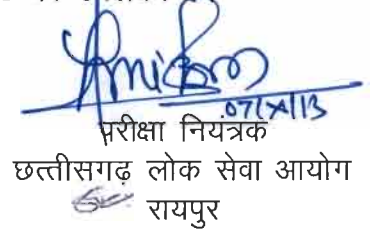 07/X/13
परीक्षा नियंत्रक
छत्तीसगढ़ लोक सेवा आयोग
रायपुर